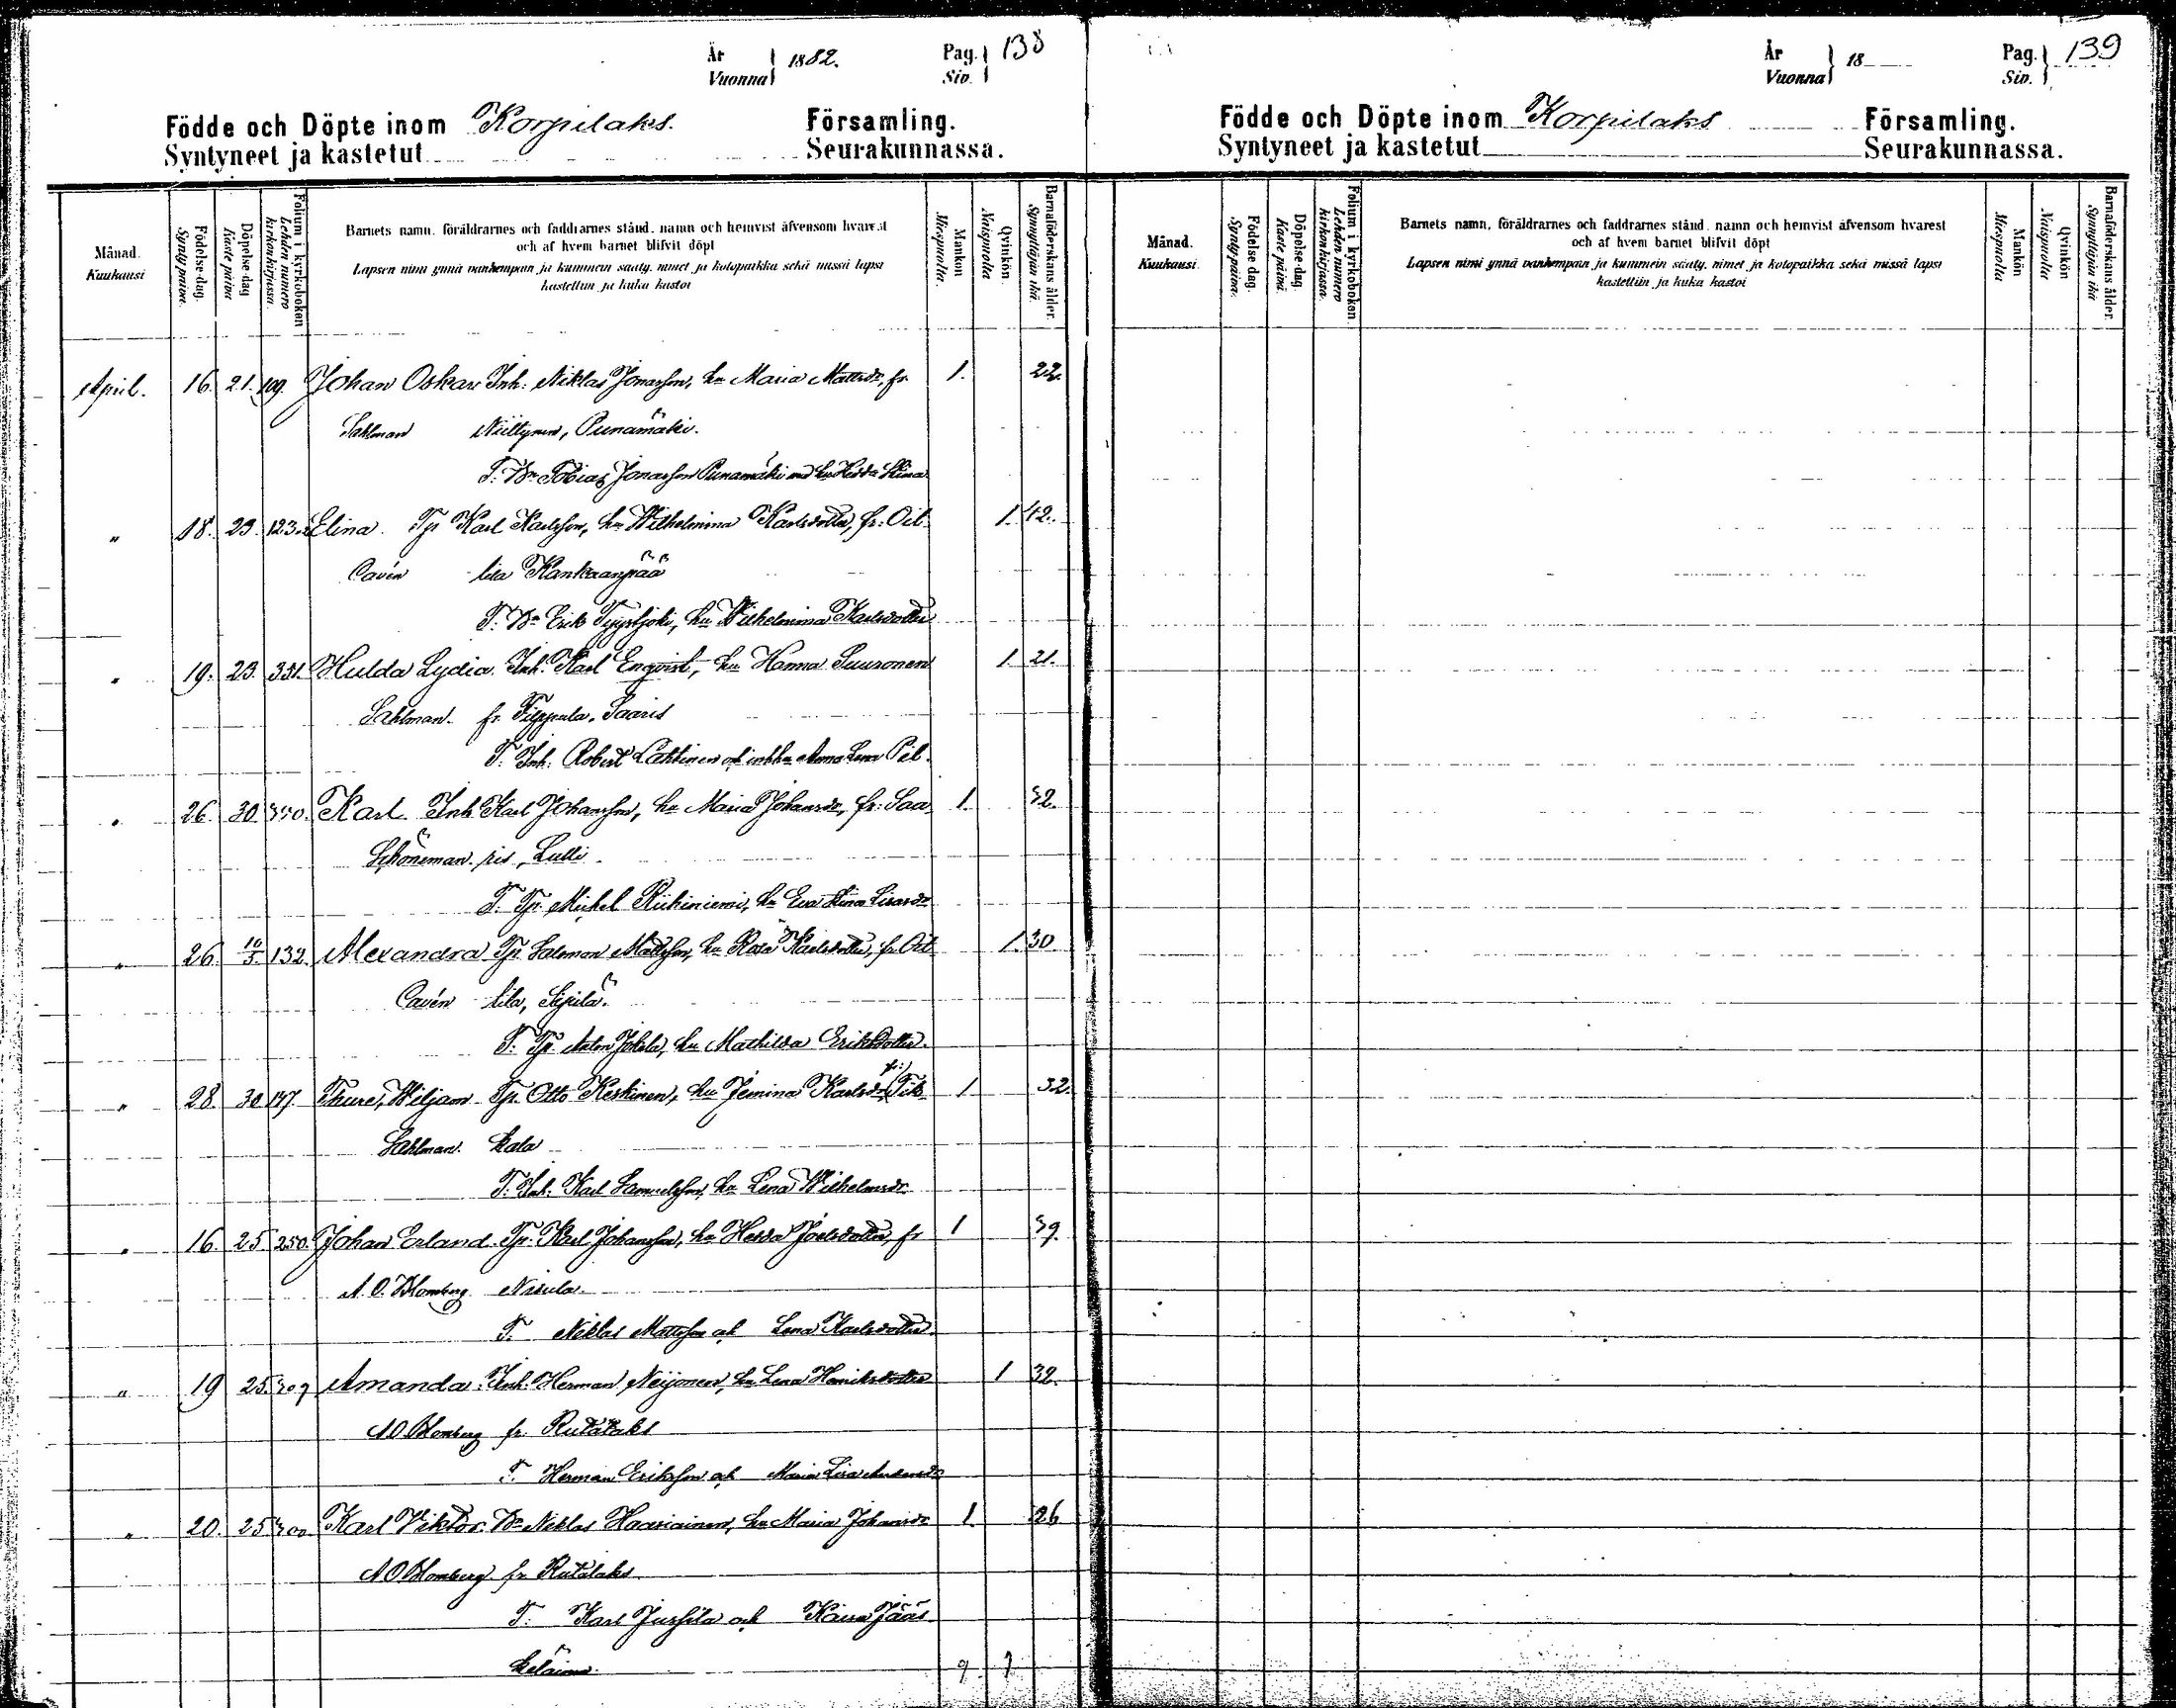 År
Vuonna } 1882.
Pag.
Siv. } 138
Födde och Döpte inom Korpilaks. Församling.
Syntyneet ja kastetut Seurakunnassa.
Månad.
Kuukausi
Födelse-dag.
Synty päivä.
Döpelse-dag
Kaste päivä
Folium i kyrkoboken
Lehden numero
kirkonkirjassa.
Barnets namn, föräldrarnes och faddrarnes stånd, namn och hemvist äfvensom hvarest
och af hvem barnet blifvit döpt
Lapsen nimi ynnä vanhempain ja kummein sääty, nimet ja kotopaikka sekä missä lapsi
kastettiin ja kuka kastoi
Mankön
Miespuolta.
Qvinkön.
Naispuolta
Barnaföderskans ålder.
Synnyttäjän ikä
April. 16. 21. 109. Johan Oskar Inh: Niklas Jonasson, hu Maria Mattsdr, fr 1. 22.
Sahlman Niittynen, Punamäki.
T. Bn Tobias Jonasson Punamäki med hu Hedda Stina
" 18. 23. 123. Elina. Tp Karl Karlsson, hu Wilhelmina Karlsdotter, fr: Oit 1. 42.
Cavén tila Kankaanpää
T. Bn Erik Tyystjoki, hu Wilhelmina Karlsdotter
" 19. 23. 351. Hulda Lydia. Inh. Karl Enqvist, hu Hanna Suuronen 1. 21.
Sahlman. fr. Filppula, Saaris
T. Inh: Robert Lahtinen och Anna Lena Pil.
" 26. 30. 350. Karl Inh Karl Johansson, hu Maria Johansdr, fr: Saa 1. 32.
Schöneman. ris, Lulli.
T. Tp. Michel Riihiniemi, hu Eva Stina
" 26. 10/5. 132. Alexandra Tp Salomon Mattsson, hu Rosa Karlsdotter, fr Oit 1. 30
Cavén tila, Sipilä.
T. Tp. Anton Jokela, hu Mathilda Eriksdotter.
" 28. 30 147. Thure, Wiljam Tp. Otto Keskinen, hu Jemina Karlsdr, fr: Tik 1 32.
Sahlman. kala
T. Inh. Karl Samuelsson, hu Lena Wilhelmsdr.
" 16. 25. 250. Johan Erland. Tp. Karl Johansson, hu Hedda Joelsdotter, fr 1 39.
A. O. Blomberg Nisula.
T. Niklas Mattsson och Lena Karlsdotter.
" 19 25. 309 Amanda. Inh: Herman Neijonen, hu Lena Henriksdotter 1 32.
A O Blomberg fr. Rutalaks
T. Herman Eriksson och Maria Lisa
" 20. 25 300 Karl Viktor. Bn Niklas Haariainen, hu Maria Johansdr 1. 26
A O Blomberg fr. Rutalaks
T. Karl Jussila och Kaisa Jääs
keläinen. 9 7
År
Vuonna } 18
Pag.
Siv. } 139
Födde och Döpte inom Korpilaks Församling.
Syntyneet ja kastetut Seurakunnassa.
Månad.
Kuukausi
Födelse dag.
Synty-päivä.
Döpelse-dag.
Kaste päivä.
Folium i kyrkoboken
Lehden numero
kirkon kirjassa.
Barnets namn, föräldrarnes och faddrarnes stånd, namn och hemvist äfvensom hvarest
och af hvem barnet blifvit döpt
Lapsen nimi ynnä vanhempain ja kummein sääty, nimet ja kotopaikka sekä missä lapsi
kastettiin ja kuka kastoi
Mankön
Miespuolta
Qvinkön
Naispuolta
Barnaföderskans ålder.
Synnyttäjän ikä